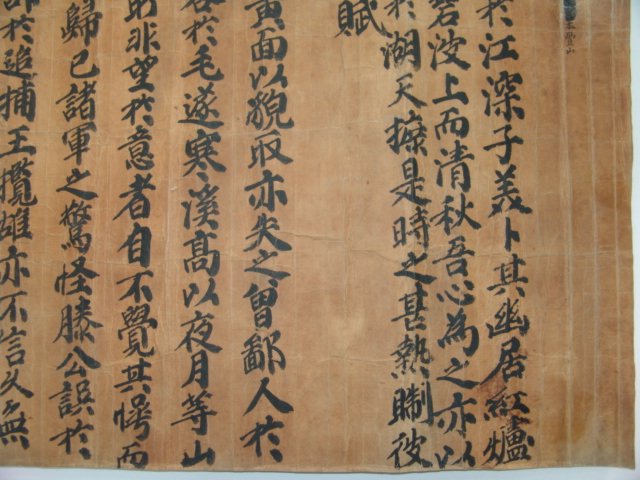 本豊山
於江深子美卜其幽居紅爐
上而清秋吾心為之亦以
於湖天據是時之甚熱制彼
賦
面以貌取亦失之曾鄙人於
於毛遂寒溪高以夜月等山
非望於意者自不覺其愕而
歸已諸軍之驚怪滕公誤於
於追捕王攬雄亦不言久無